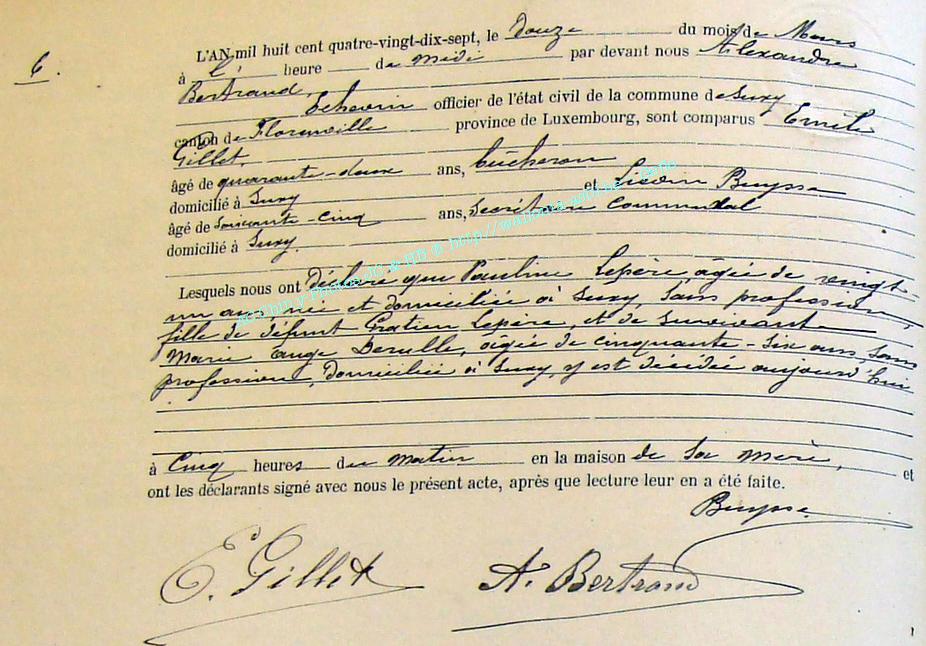 6.
L'AN mil huit cent quatre-vingt-dix-sept, le Douze du mois de Mars
à l' heure de Midi par devant nous Alexandre
Bertrand,
Echevin officier de l'état civil de la commune de Suxy
canton de Florenville province de Luxembourg, sont comparus Emile
Gillet,
âgé de quarante-deux ans, bûcheron
domicilié à Suxy et Buysse
âgé de soixante-cinq ans, Secrétaire Communal
domicilié à Suxy.
Lesquels nous ont Déclaré que Pauline Lepère âgée de vingt-
un ans, née et domiciliée à Suxy, Sans profession,
fille de défunt Gratien Lepère, et de Survivante
Marie Ange âgée de cinquante-six ans, Sans
profession, Domiciliée à Suxy, y est décédée aujourd'hui
à Cinq heures du matin en la maison de Sa mère, et
ont les déclarants signé avec nous le présent acte, après que lecture leur en a été faite.
Buysse
E. Gillet A. Bertrand